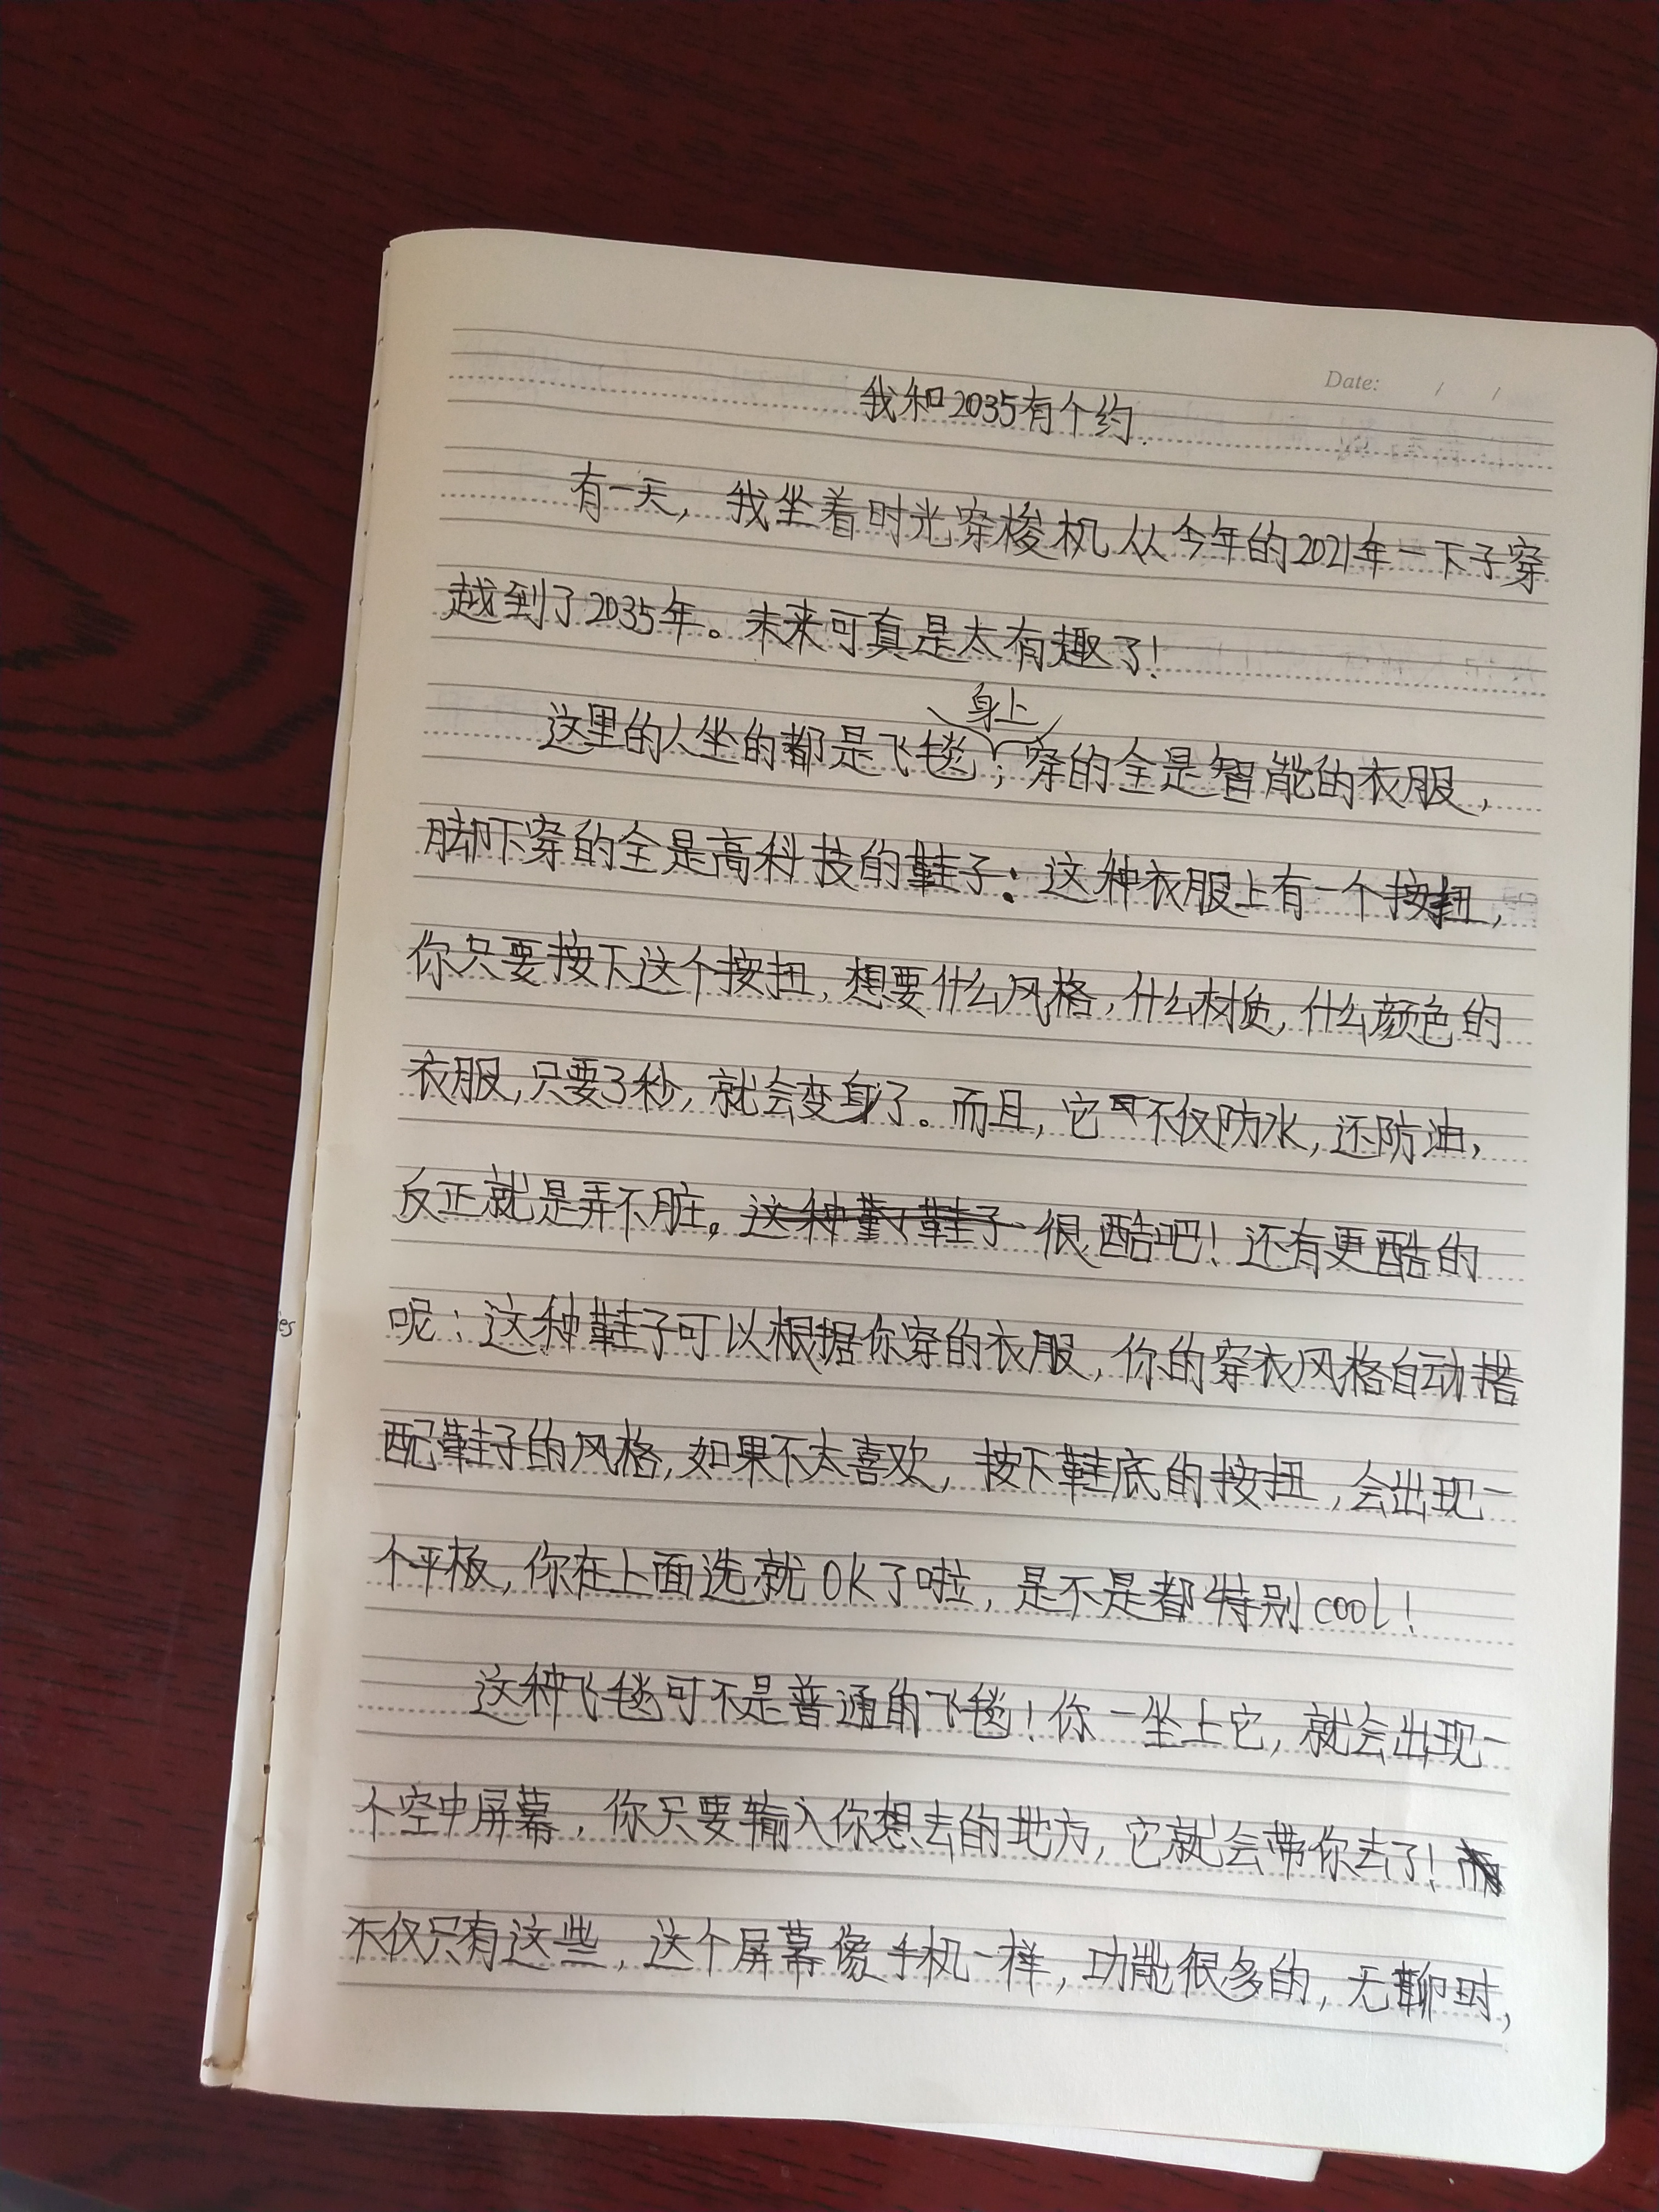 Date: / /
我和2035有个约
有一天，我坐着时光穿梭机从今年的2021年一下子穿
越到了2035年。未来可真是太有趣了！
身上
这里的人坐的都是飞毯；穿的全是智能的衣服，
脚下穿的全是高科技的鞋子：这种衣服上有一个按扭，
你只要按下这个按扭，想要什么风格，什么材质，什么颜色的
衣服，只要3秒，就会变身了。而且，它可不仅防水，还防油，
反正就是弄不脏。很酷吧！还有更酷的
呢：这种鞋子可以根据你穿的衣服，你的穿衣风格自动搭
配鞋子的风格，如果不太喜欢，按下鞋底的按扭，会出现一
个平板，你在上面选就OK了啦，是不是都特别cool！
这种飞毯可不是普通的飞毯！你一坐上它，就会出现一
个空中屏幕，你只要输入你想去的地方，它就会带你去了！
不仅只有这些，这个屏幕像手机一样，功能很多的，无聊时，
es